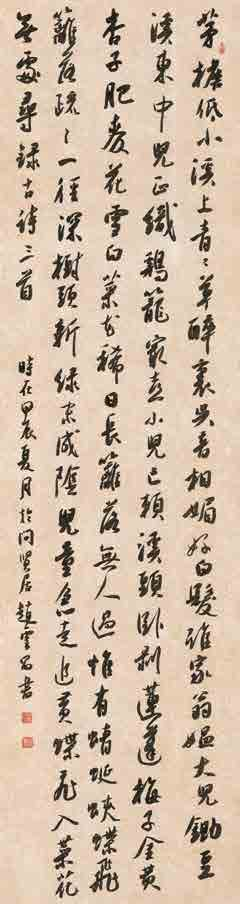 茅檐低小溪上青〻草醉裏吴音相媚好白髮誰家翁媪大兒鋤豆
溪東中兒正織鷄籠最喜小兒亡賴溪頭卧剥蓮蓬梅子金黄
杏子肥麥花雪白菜花稀日長籬落無人過惟有蜻蜓蛺蝶飛
籬落疏〻一徑深樹頭新緑未成陰兒童急走追黄蝶飛入菜花
無處尋録古詩三首
時在甲辰夏月於問居趙雲書